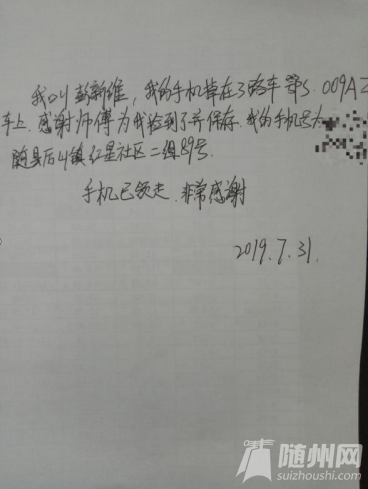 我叫彭新维，我的手机掉在3路车 鄂S.009AZ
车上.感谢师傅为我捡到了并保存.我的手机号为
随县厉山镇红星社区二组89号.
手机已领走.非常感谢
2019.7.31.
随州网
suizhoushi.com